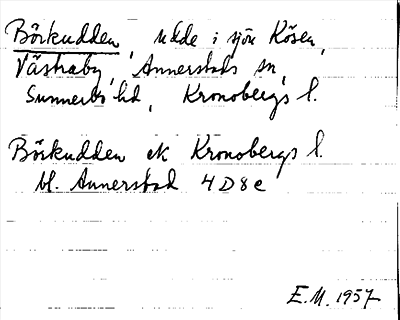 Börkudden, udde i sjön Kösen,
Västraby, Annerstads sn,
Sunnerbo hd, Kronobergs l.
Börkudden ek Kronobergs l.
bl. Annerstad 4D8e
E.M. 1957